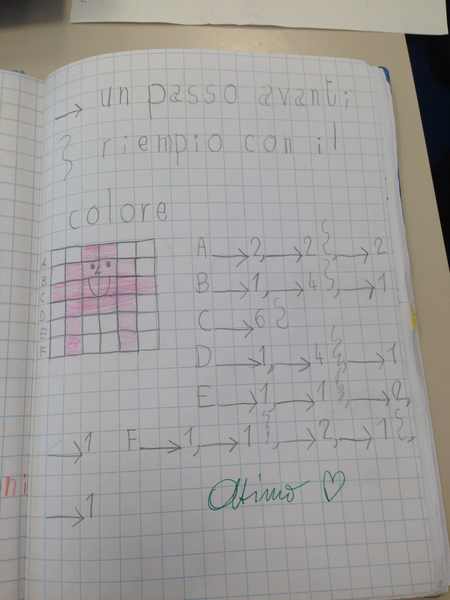 → un passo avanti
} riempio con il
colore
A →2, →2 }, →2
B →1, →4 }, →1
C →6 }
D →1, →4 }, →1
E →1, →1 }, →2,
→1 F →1, →1 }, →2, →1 },
→1
Ottimo ♡
A
B
C
D
E
F